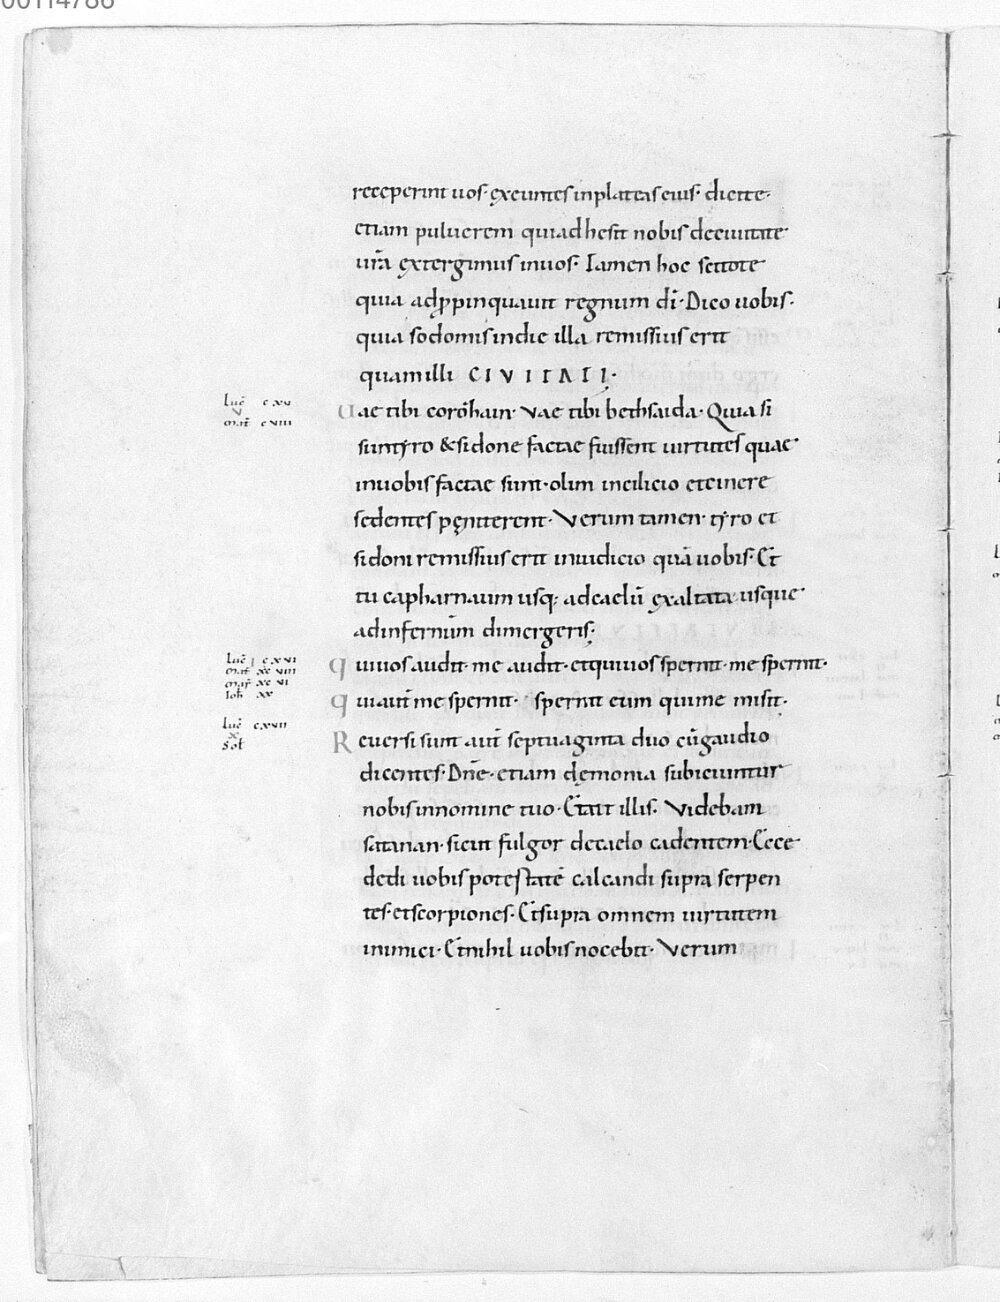 00114786
receperint uos· exeuntes inplateas eius· dicite·
etiam puluerem qui adhesit nobis deciuitate
urā extergimus inuos· Tamen hoc scitote
quia adp̄pinquauit regnum dī· Dico uobis·
quia sodomis indie illa remissius erit
quamilli CIVITATI·
Luc̄ cxv
mat̄ cviii
Uae tibi corōhain· Vae tibi bethsaida· Quia si
suntyro & sidone factae fuissent uirtutes quae
inuobis factae sunt· olim incilicio etcinere
sedentes pęniterent· Verum tamen tyro et
sidoni remissius erit iniudicio quā uobis· Et
tu capharnaum usq; adcaelū exaltata usque
adinfernum dimergeris;
Luc̄ cxvi
mat̄ xcviii
mar̄ xcvi
Ioh̄ xx
Quiuos audit· me audit· etquiuos spernit· me spernit·
Quiaut̄ me spernit· spernit eum quime misit·
Luc̄ cxvii
x
Sol
Reuersi sunt aut̄ septuaginta duo cūgaudio
dicentes· Dn̄e· etiam dęmonia subiciuntur
nobis innomine tuo· Etait illis· Videbam
satanan· sicut fulgor decaelo cadentem· Ecce
dedi uobis potestatē calcandi supra serpen
tes· etscorpiones· Etsupra omnem uirtutem
inimici· Etnihil uobis nocebit· Verum